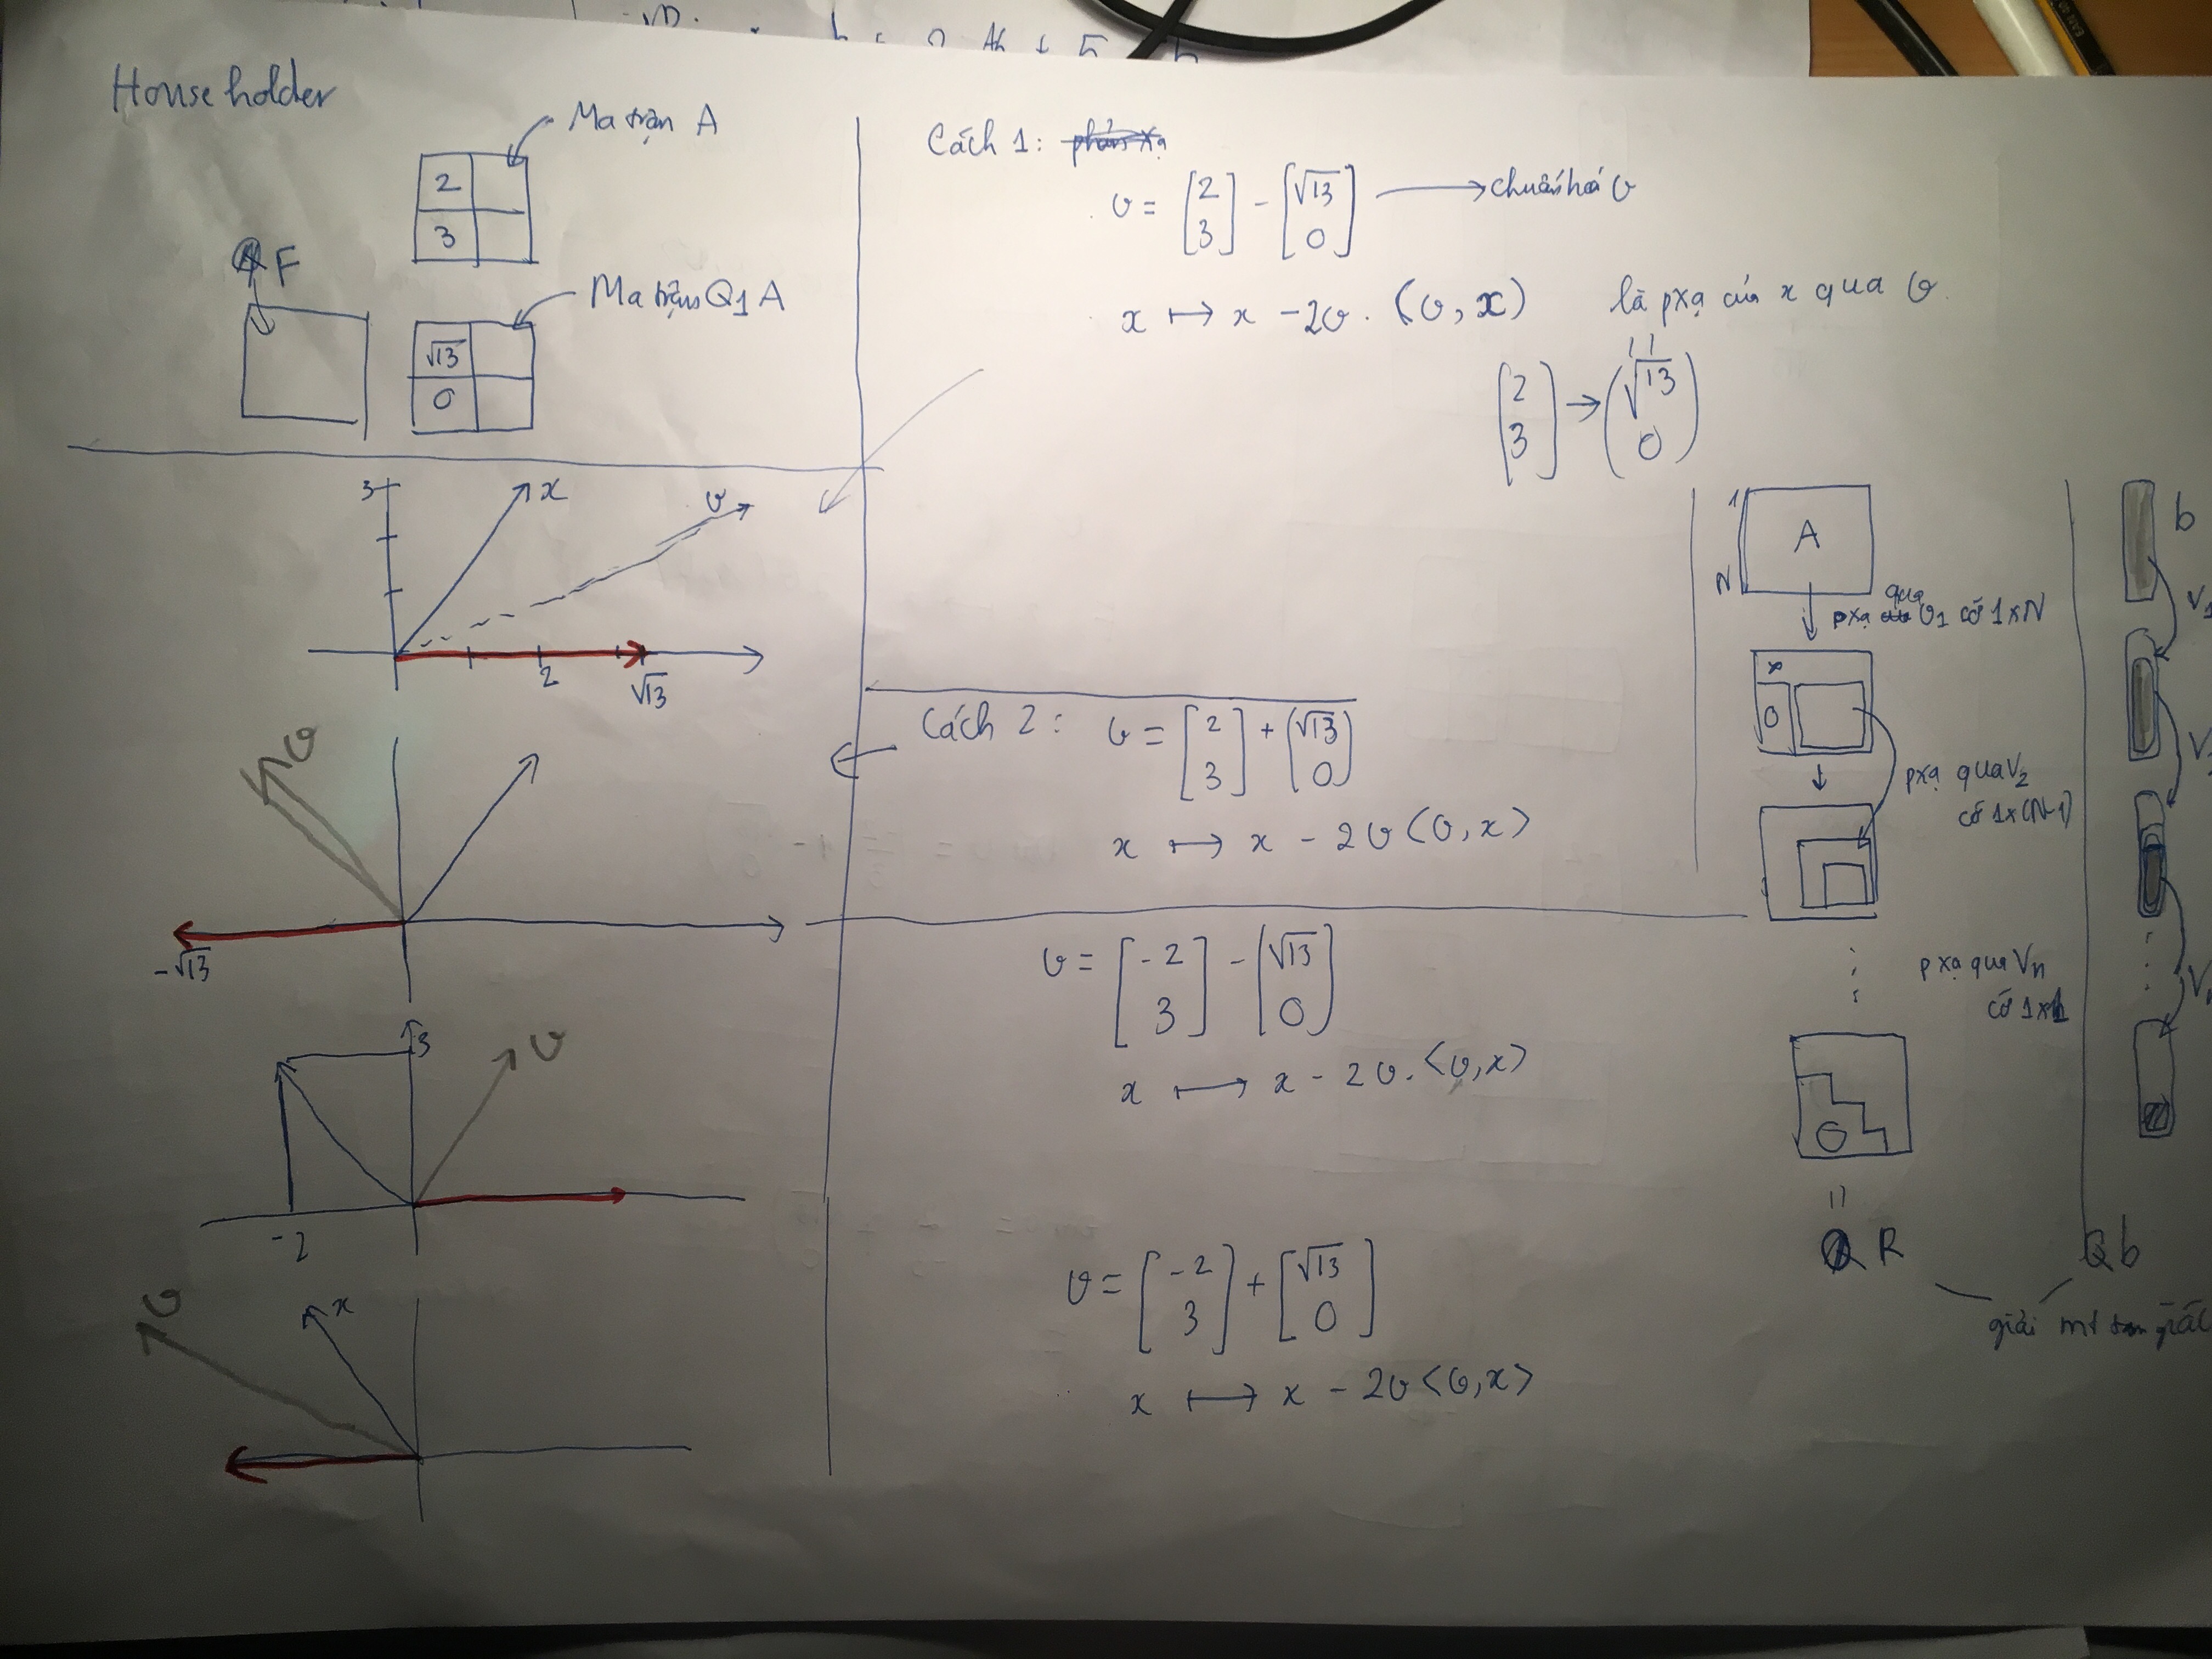 Householder
Ma trận A
2
3
F
Ma trận Q1 A
√13
0
Cách 1:
v = [2 3] - [√13 0] → chuẩn hoá v
x ↦ x - 2v . (v, x) là pxạ của x qua v
[2 3] → (√13 0)
3
x
v
2
√13
Cách 2: v = [2 3] + (√13 0)
x ↦ x - 2v <v, x>
v
-√13
v = [-2 3] - (√13 0)
x ↦ x - 2v . <v, x>
3
v
-2
v = [-2 3] + [√13 0]
x ↦ x - 2v <v, x>
v
x
1
A
N
pxạ qua v1 cỡ 1xN
x
0
pxạ qua V2
cỡ 1x(N-1)
pxạ qua Vn
cỡ 1x1
0
R
b
V1
Qb
giải mt tam giác